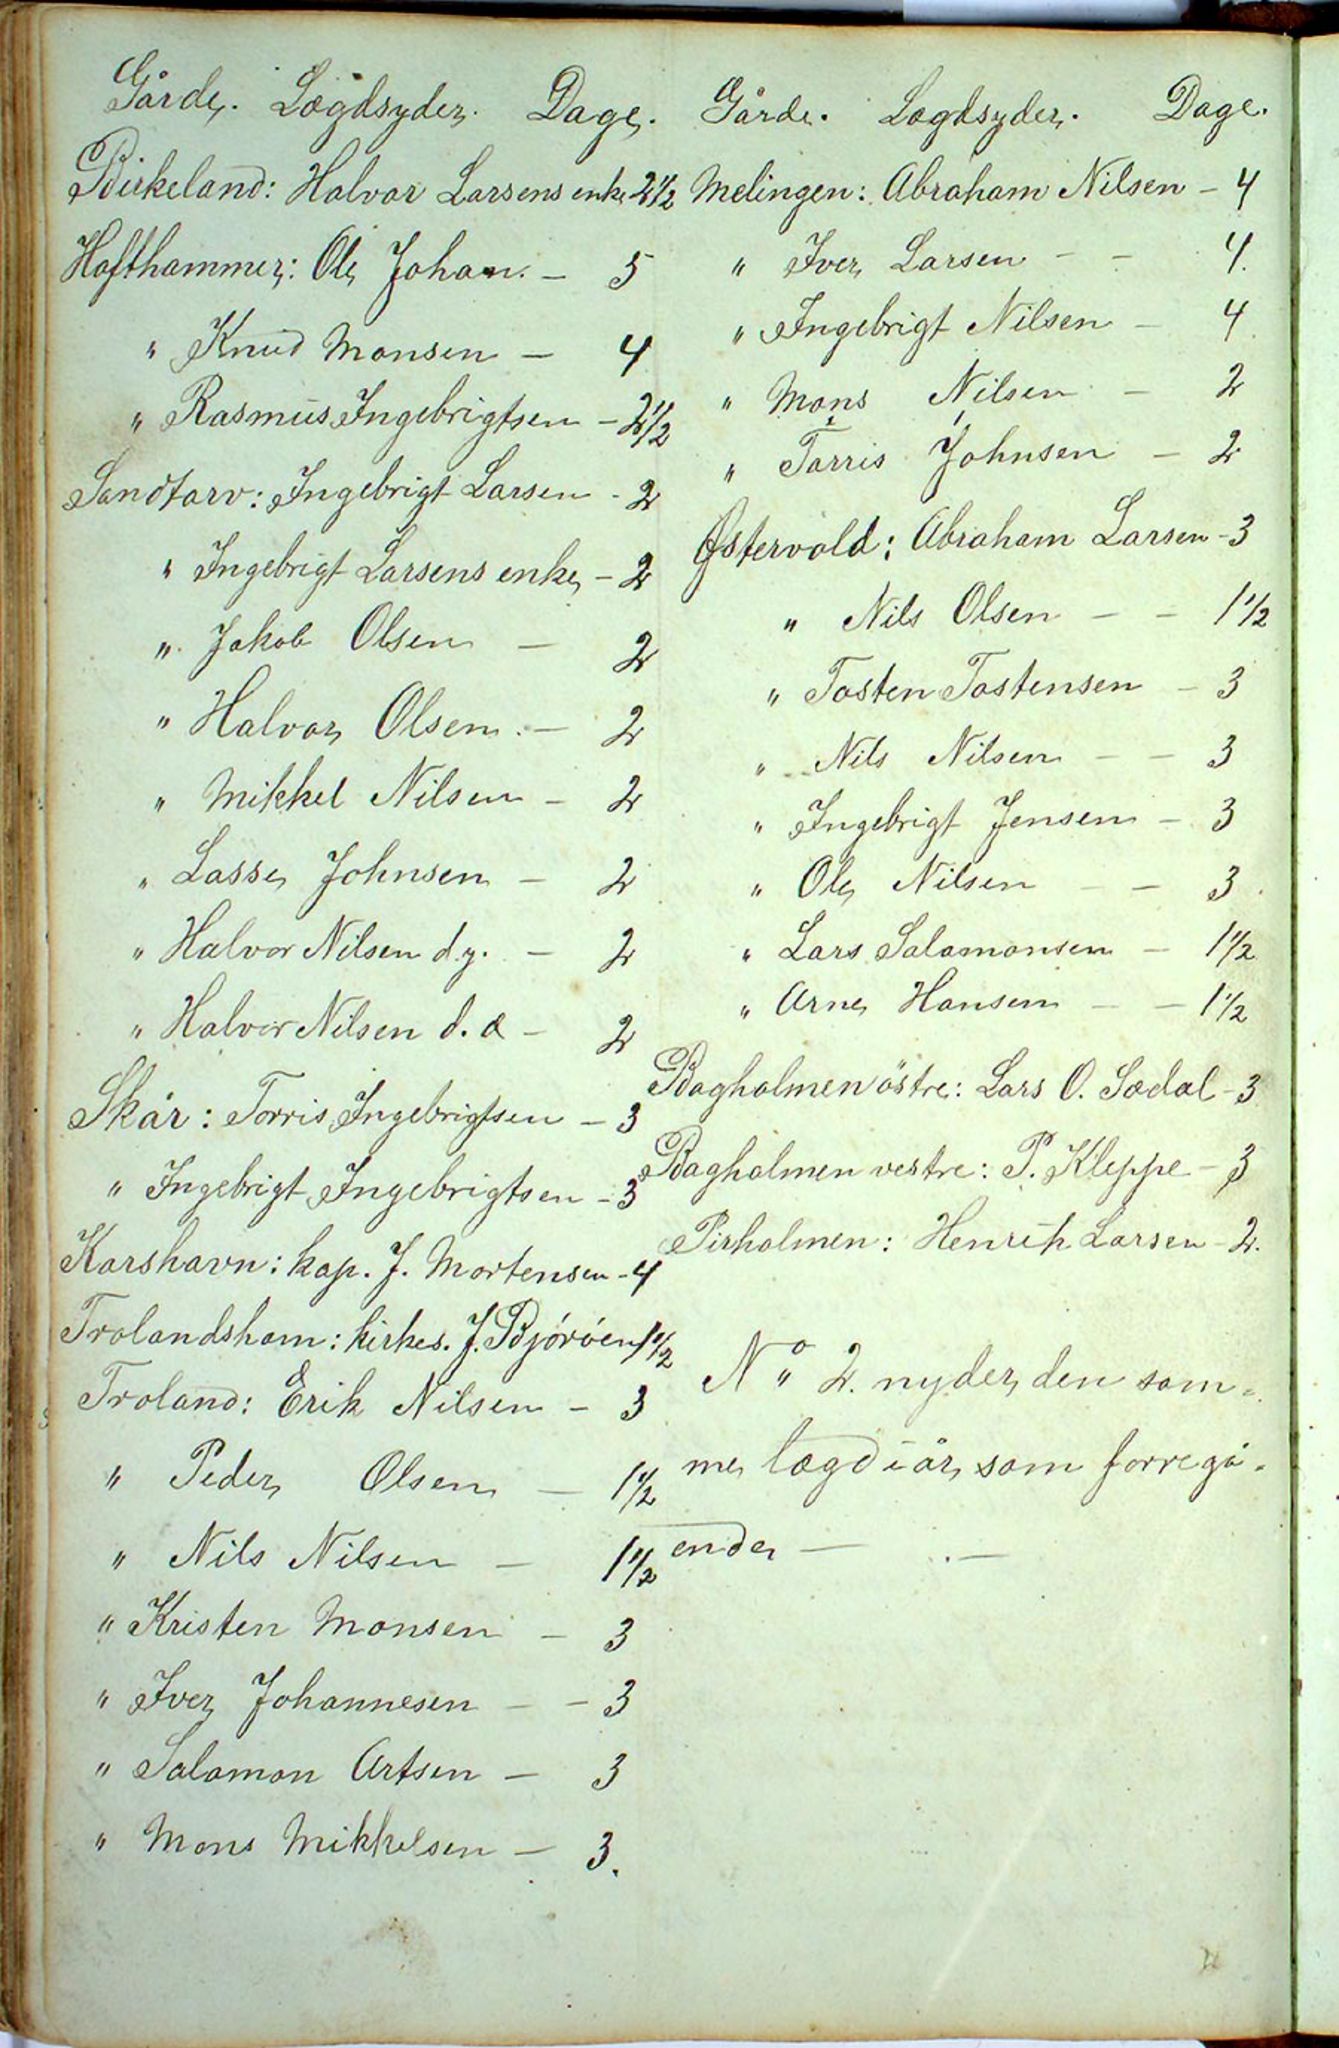 Gårde. Lægdsyder. Dage.
Birkeland: Halvor Larsens enke - 2 1/2
Hofthammer: Ole Johan. - 5
" Knud Monsen - 4
" Rasmus Ingebrigtsen - 2 1/2
Sandtorv: Ingebrigt Larsen - 2
" Ingebrigt Larsens enke - 2
" Jakob Olsen - 2
" Halvor Olsen. - 2
" Mikkel Nilsen - 2
" Lasse Johnsen - 2
" Halvor Nilsen d.y. - 2
" Halvor Nilsen d. æ - 2
Skår: Torris Ingebrigtsen - 3
" Ingebrigt Ingebrigtsen - 3
Korshavn: kap. J. Mortensen - 4
Trolandsham: kirkes. J. Björöen 1 1/2
Troland: Erik Nilsen - 3
" Peder Olsen - 1 1/2
" Nils Nilsen - 1 1/2
" Kristen Monsen - 3
" Iver Johannesen - - 3
" Salamon Artsen - 3
" Mons Mikkelsen - 3.
Gårde. Lægdsyder. Dage.
Melingen: Abraham Nilsen - 4
" Iver Larsen - - 4.
" Ingebrigt Nilsen - 4
" Mons Nilsen - 2
" Torris Johnsen - 2
Østervold: Abraham Larsen - 3
" Nils Olsen - - 1 1/2
" Tosten Tostensen - 3
" Nils Nilsen - - 3
" Ingebrigt Jensen - 3
" Ole Nilsen - - 3
" Lars Salamonsen - 1 1/2
" Arne Hansen - - 1 1/2
Bagholmen östre: Lars O. Sædal - 3
Bagholmen vestre: P. Kleppe - 3
Pirholmen: Henrik Larsen - 2.
No 2. nyder den sam=
me lægd i år som forregå=
ende - . -